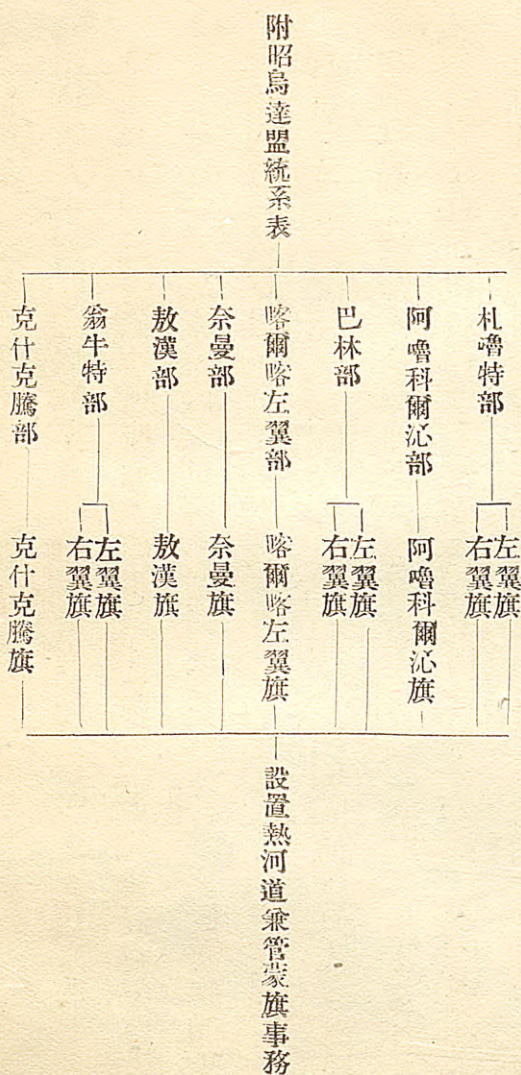 附昭烏達盟統系表
札嚕特部
左翼旗
右翼旗
阿嚕科爾沁部
阿嚕科爾沁旗
巴林部
左翼旗
右翼旗
喀爾喀左翼部
喀爾喀左翼旗
奈曼部
奈曼旗
敖漢部
敖漢旗
翁牛特部
左翼旗
右翼旗
克什克騰部
克什克騰旗
設置熱河道兼管蒙旗事務